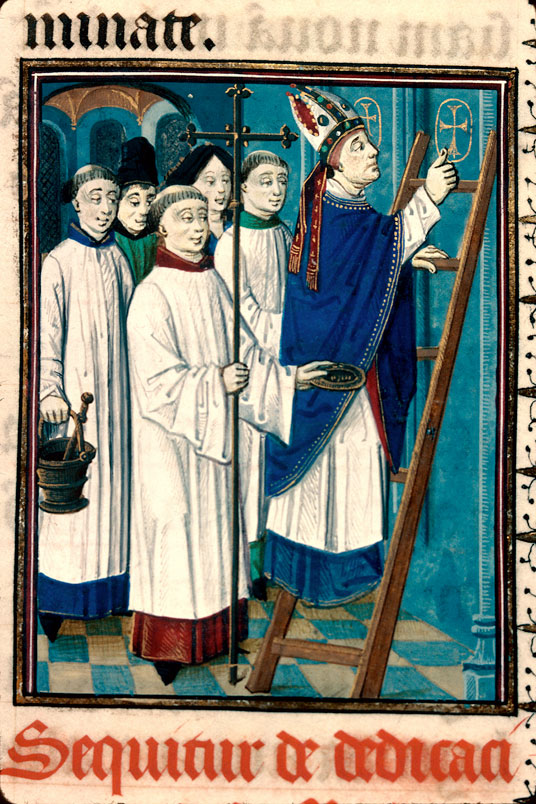 minate.
Sequitur de dedicaci